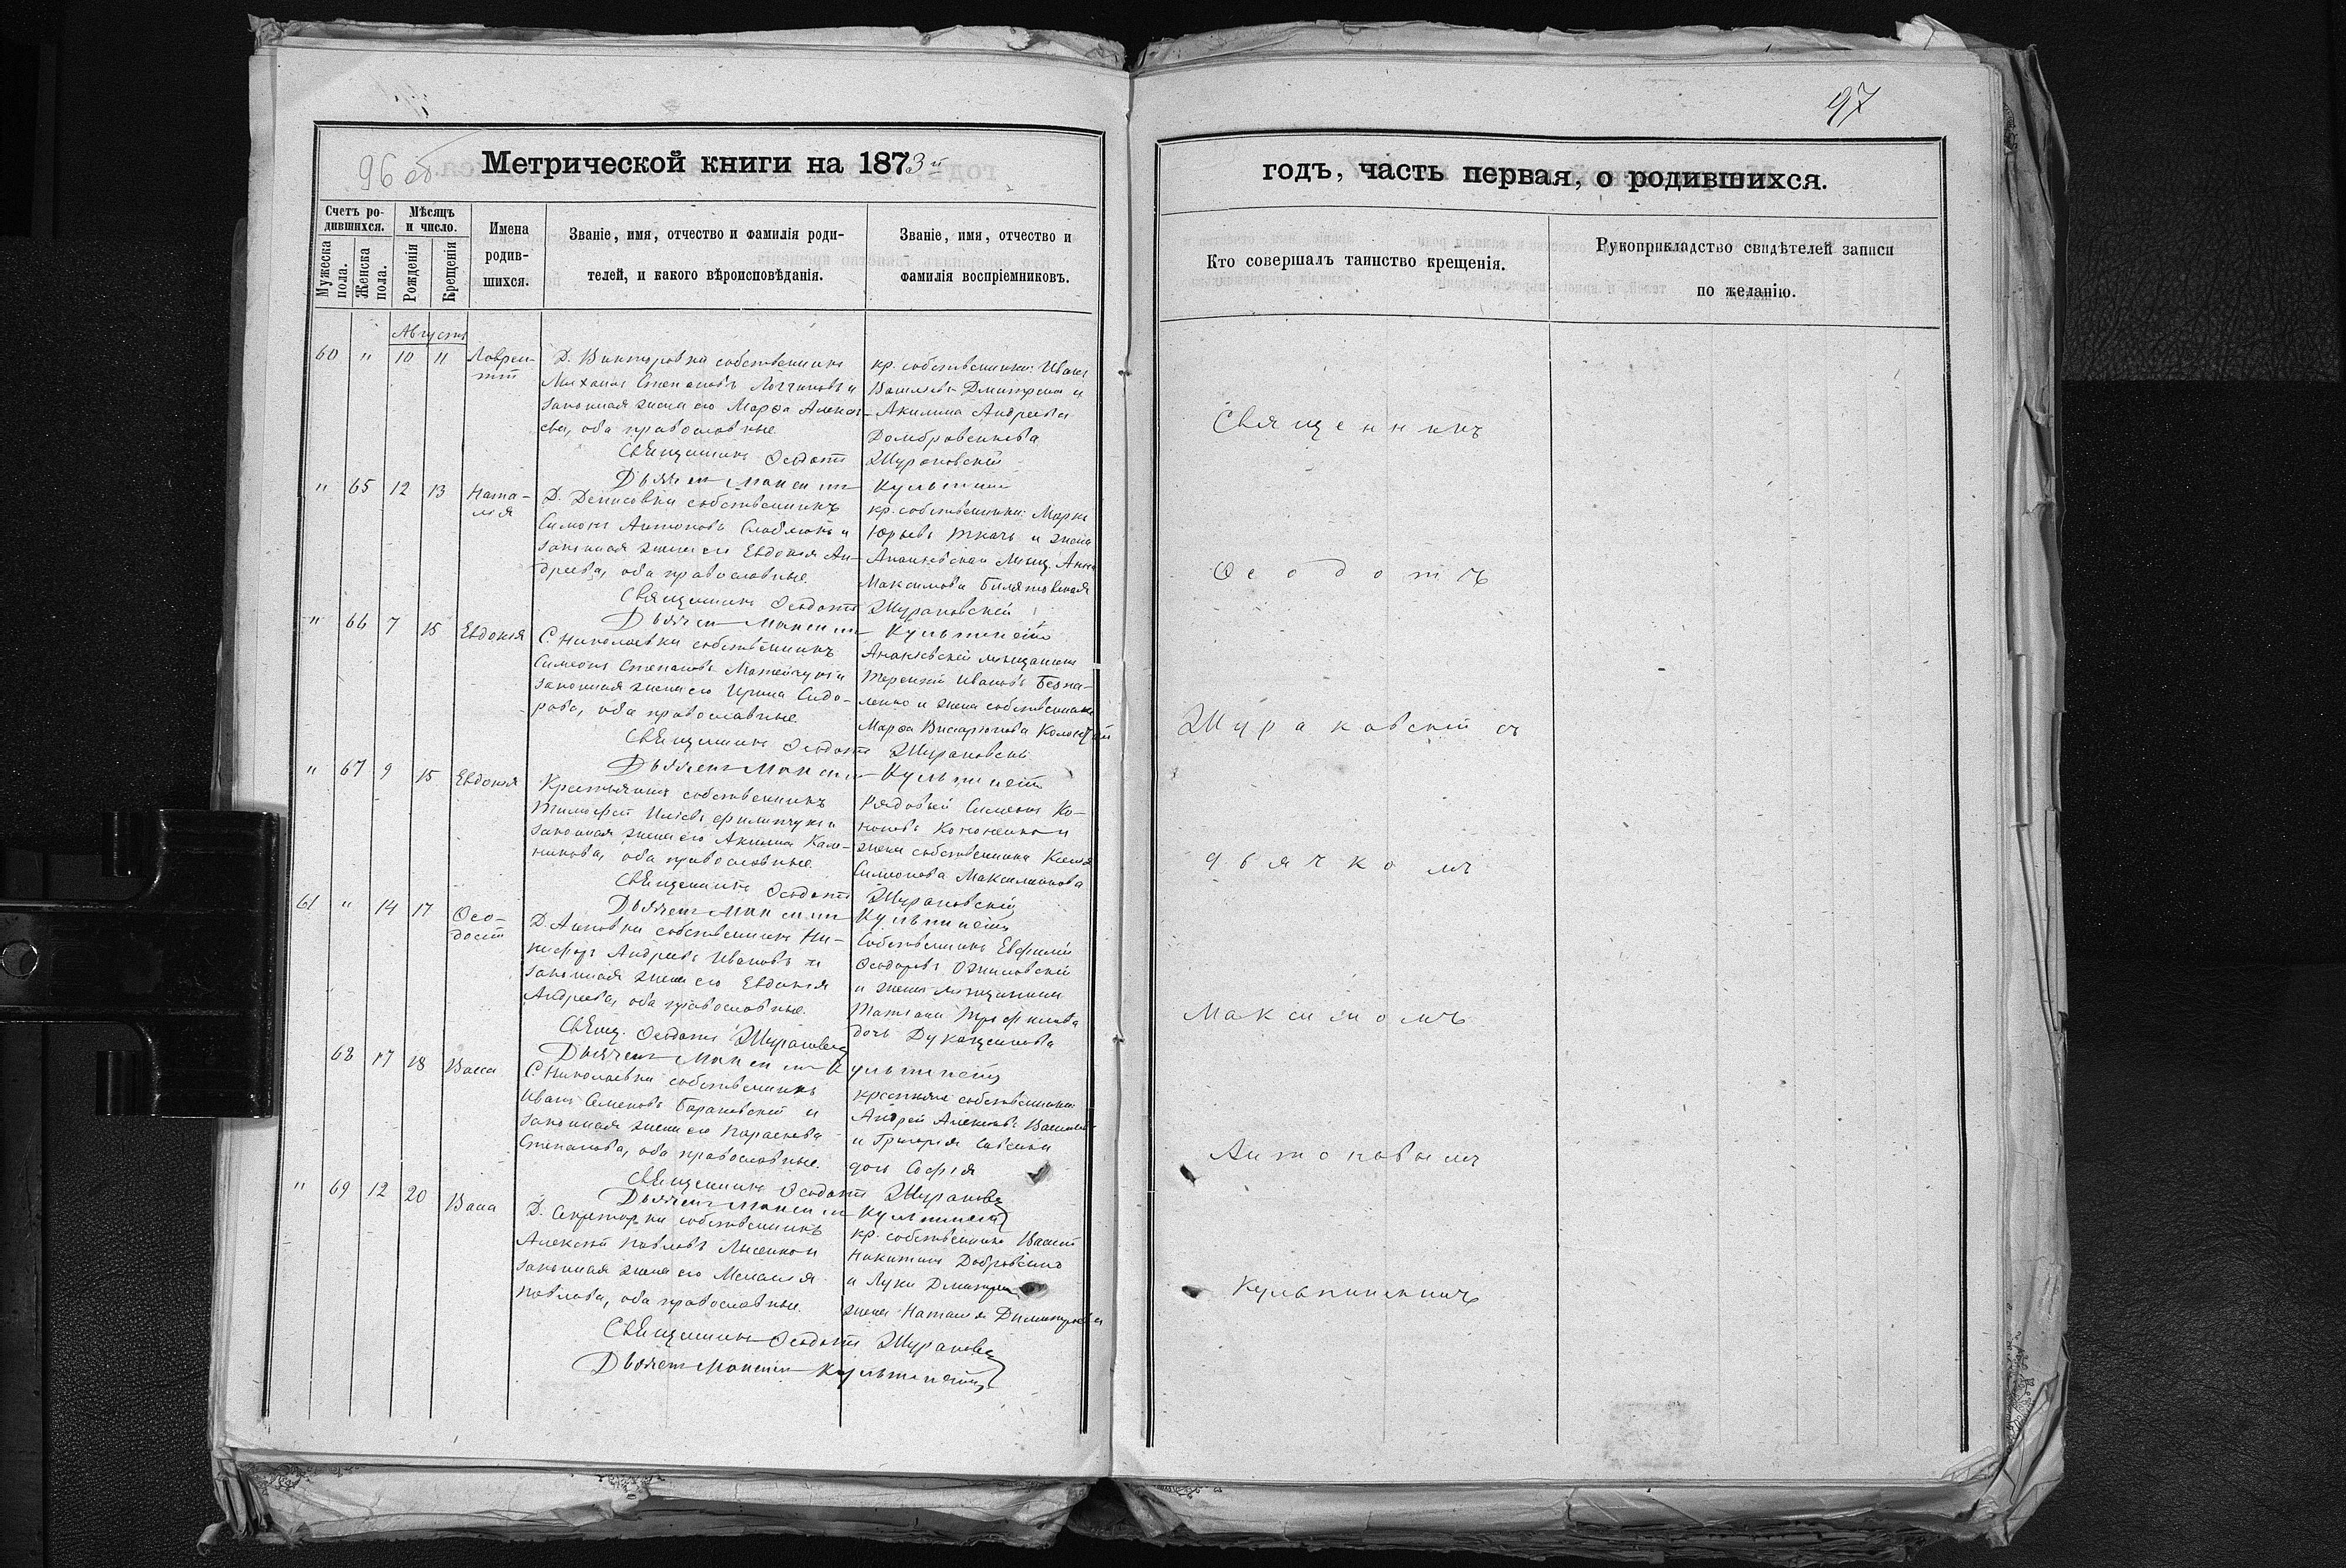 97
96 об
Метрической книги на 1873й
годъ, часть первая, о родившихся.
Счетъ родившихся.
Мужеска пола.
Женска пола.
Мѣсяцъ и число.
Рожденія
Крещенія
Имена родив-
шихся.
Званіе, имя, отчество и фамилія роди-
телей, и какого вѣроисповѣданія.
Званіе, имя, отчество и
фамилія воспріемниковъ.
Кто совершалъ таинство крещенія.
Рукоприкладство свидѣтелей записи
по желанію.
Августъ
60 " 10 11 Лаврен-
тій
Д. Викторовки собственникъ
Михаилъ Степановъ и
законная жена его Марфа Алексѣ-
ева, оба православные
кр. собственники: Иванъ
Васильевъ Дмитрени и
Акилина Андреева
Домбровскнева
Священникъ Ѳеодотъ Жураковскій
Дьячекъ Максимъ
" 65 12 13 Ната-
лія
Д. Денисовки собственникъ
Симонъ Антоновъ и
законная жена его Евдокія Ан-
дреева, оба православные
кр. собственники: Марко
Юрьевъ Ткачъ и жена
Ананьевскаго мѣщ. Анна
Максимова
Священникъ Ѳеодотъ Жураковскій
Дьячекъ Максимъ Кульпинскій
" 66 7 15 Евдокія
С. Николаевки собственникъ
Симеонъ Степановъ Матейчукъ и
законная жена его Ирина Сидо-
рова, оба православные
Ананьевскій мѣщанинъ
Терентій Ивановъ Безпа-
ленко и жена собственника
Марфа
Священникъ Ѳеодотъ Жураковскій
Дьячекъ Максимъ Кульпинскій
" 67 9 15 Евдокія
Крестьянинъ собственникъ
Тимофей Филипчукъ и
законная жена его Акилина Кали-
никова, оба православные
Рядовый Симеонъ Ко-
ноновъ Кононенко и
жена собственника Ксенія
Симеонова Максимюкова
Священникъ Ѳеодотъ Жураковскій
Дьячекъ Максимъ Кульпинскій
61 " 14 17 Ѳео-
досій
Д. Анновки собственникъ Ни-
кифоръ Андреевъ Ивановъ и
законная жена его Евдокія
Андреева, оба православные.
Собственникъ Евфимій
Ѳеодоровъ
и жена мѣщанина
Татіана
дочь
Свящ. Ѳеодотъ Жураковскій
Дьячекъ Максимъ Кульпинскій
68 17 18 Васса
С. Николаевки собственникъ
Иванъ Семеновъ Барановскій и
законная жена его Параскева
Степанова, оба православные.
крестьяне собственники
Андрей Алексѣевъ
и Григорія
дочь Софія
Священникъ Ѳеодотъ Жураковскій
Дьячекъ Максимъ Кульпинскій
" 69 12 20 Васса
Д. Секретарки собственникъ
Алексѣй Павловъ Лысенко и
законная жена его Меланія
Павлова, оба православные.
кр. собственники
Никитинъ
и Луки
жена Наталія Димитріева
Священникъ Ѳеодотъ Жураковскій
Дьячекъ Максимъ Кульпинскій
Священникъ
Ѳеодотъ
Жураковскій съ
дьячкомъ
Максимомъ
Антоновымъ
Кульпинскимъ